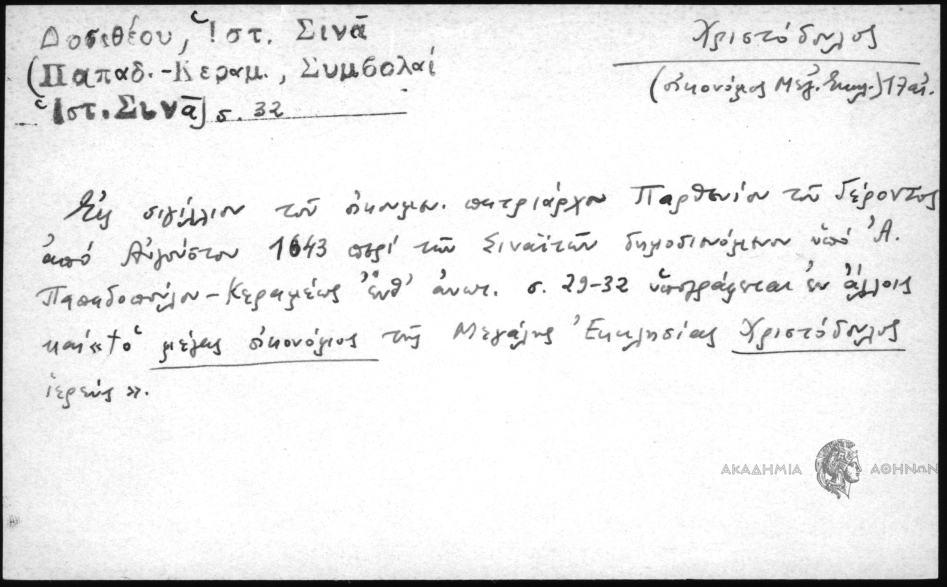 Δοσιθέου, Ἱστ. Σινᾶ
(Παπαδ.-Κεραμ., Συμβολαί
Ἱστ. Σινᾶ) σ. 32
Χριστόδουλος
(οἰκονόμος Μεγ. Ἐκκλ.) 17 αἰ.
Εἰς σιγίλλιον τοῦ οἰκουμεν. πατριάρχου Παρθενίου τοῦ Γέροντος
ἀπό Αὐγούστου 1643 περί τῶν Σιναϊτῶν δημοσιευόμενον ὑπό Ἀ.
Παπαδοπούλου-Κεραμέως ἔνθ' ἀνωτ. σ. 29-32 ὑπογράφεται ἐν ἄλλοις
καί «† ὁ μέγας οἰκονόμος τῆς Μεγάλης Ἐκκλησίας Χριστόδουλος
ἱερεύς».
ΑΚΑΔΗΜΙΑ ΑΘΗΝΩΝ